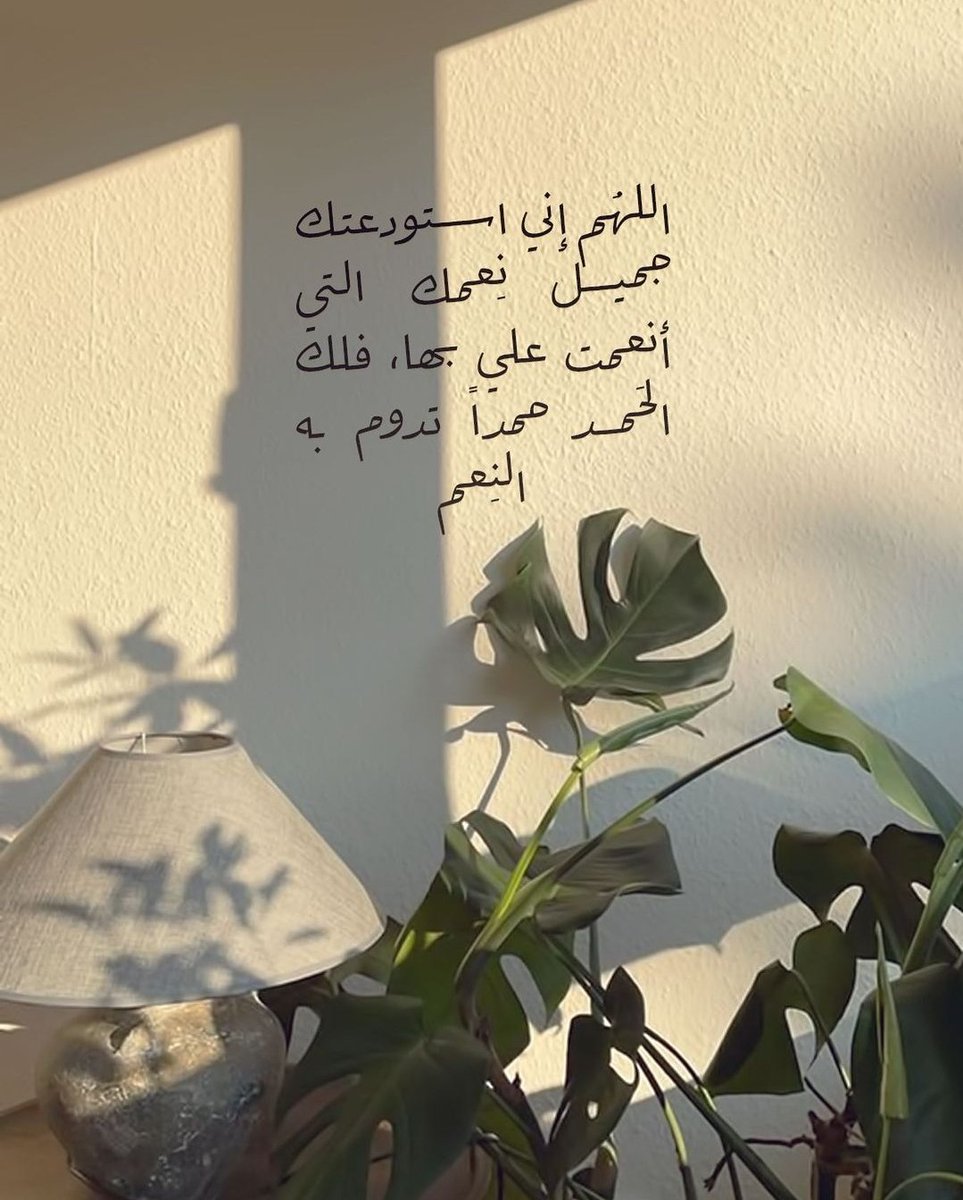 اللهُم إني استودعتك
جميل نِعمك التي
أنعمت علي بها، فلك
الحَمد حمداً تدوم به
النِعم